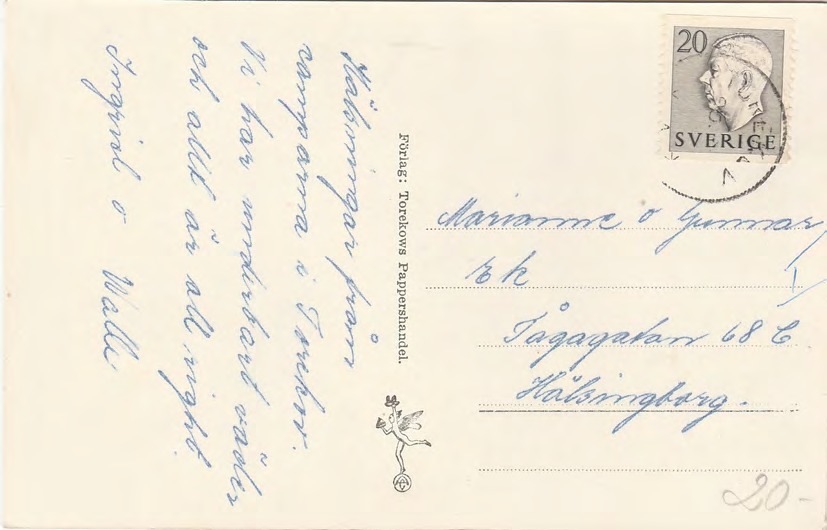 Hälsningar från
camparna i Torekov.
Vi har underbart väder
och allt är all right.
Ingrid o Walle
Förlag: Torekows Pappershandel.
20
SVERIGE
Marianne o Gunnar
Ek
Tågagatan 68 C
Hälsingborg.
20-